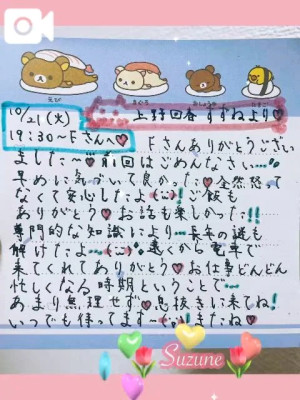 えび
まぐろ
たまご
10/21(火)
上野回春 すずねより♡
19:30〜Fさんへ♡
Fさんありがとうござい
ました〜♡前回はごめんなさい…
早めに気づいて良かった♡全然怒って
なくて安心したよ(;_;)ご飯も
ありがとう♡お話も楽しかった!!
専門的な知識により…長年の謎も
解けたよ…遠くから電車で
来てくれてありがとう♡お仕事どんどん
忙しくなる時期ということで…
あまり無理せず♡息抜きに来てね!
いつでも待ってます〜またね♡
Suzune